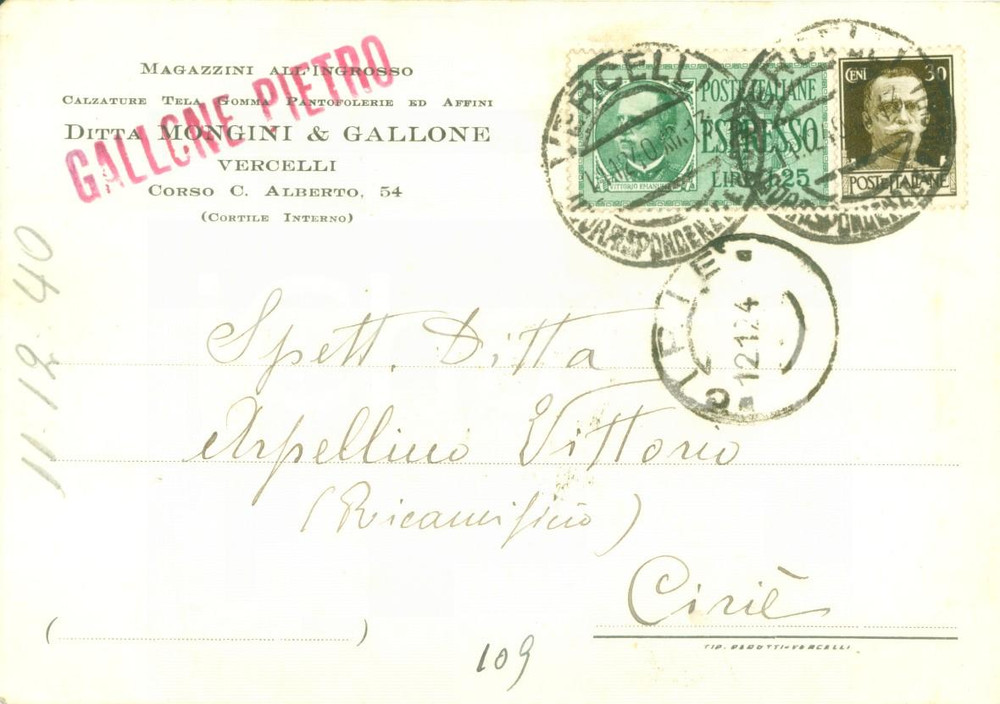 MAGAZZINI ALL'INGROSSO
CALZATURE TELA GOMMA PANTOFOLERIE ED AFFINI
DITTA MONGINI & GALLONE
VERCELLI
CORSO C. ALBERTO, 54
(CORTILE INTERNO)
GALLONE PIETRO
VERCELLI
CORRISPONDENZE
POSTE ITALIANE
ESPRESSO
LIRE 1,25
VITTORIO EMANUELE
VERCELLI
CORRISPONDENZE
CENT 30
POSTE ITALIANE
CIRIE
12124
11-12-40
Spett. Ditta
Arpellino Vittorio
(Ricamificio)
Ciriè
( )
109
TIP. PEROTTI-VERCELLI